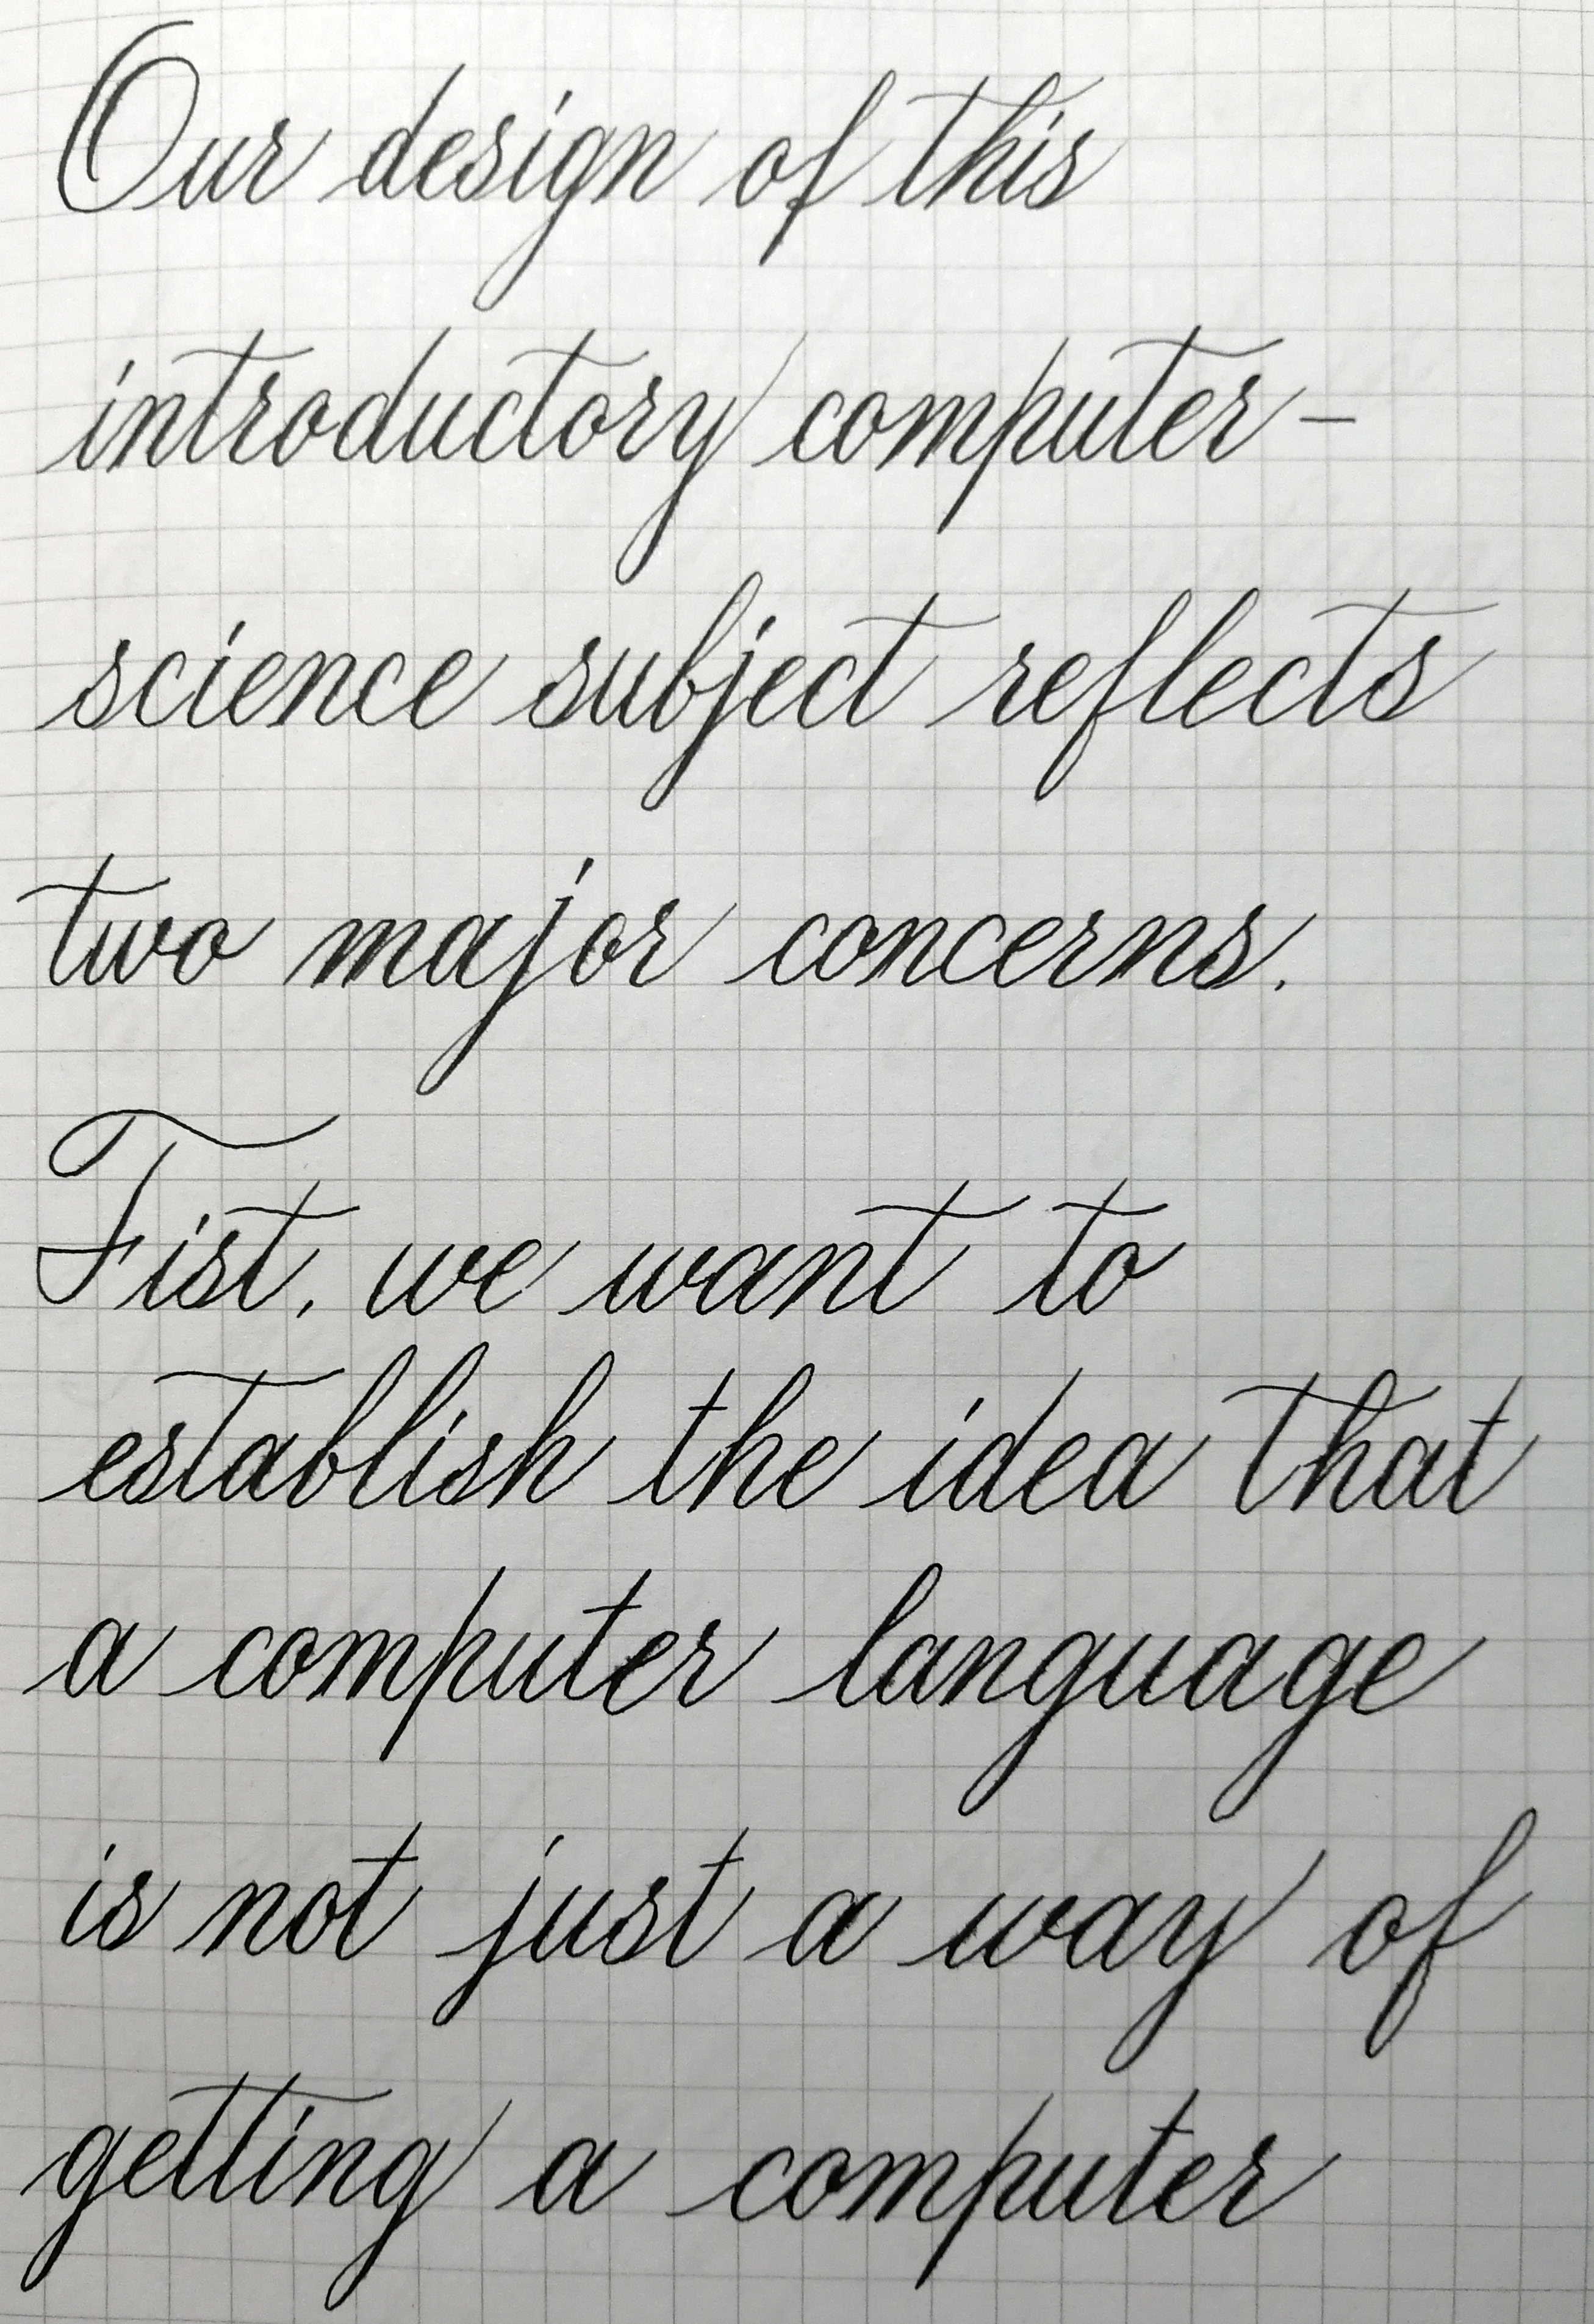 Our design of this
introductory computer-
science subject reflects
two major concerns.
Fist, we want to
establish the idea that
a computer language
is not just a way of
getting a computer